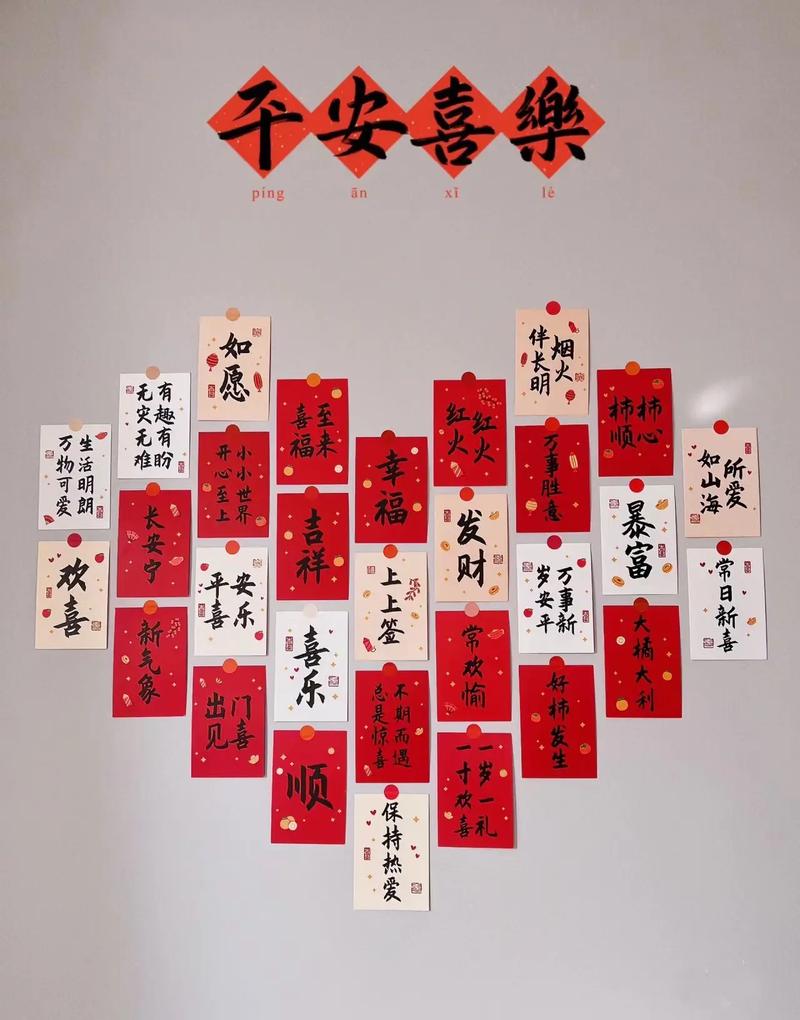 平安喜樂
píng ān xǐ lè
生活明朗
万物可爱
欢喜
有趣有盼
无灾无难
长安宁
新气象
如愿
小小世界
开心至上
平安
喜乐
出门
见喜
喜至
福来
吉祥
喜乐
顺
幸福
上上签
不期而遇
总是惊喜
保持热爱
红红
火火
发财
常欢愉
一岁一礼
一寸欢喜
烟火
伴长明
万事胜意
万事新
岁安平
好柿发生
柿柿
顺心
暴富
大橘大利
所爱
如山海
常日新喜